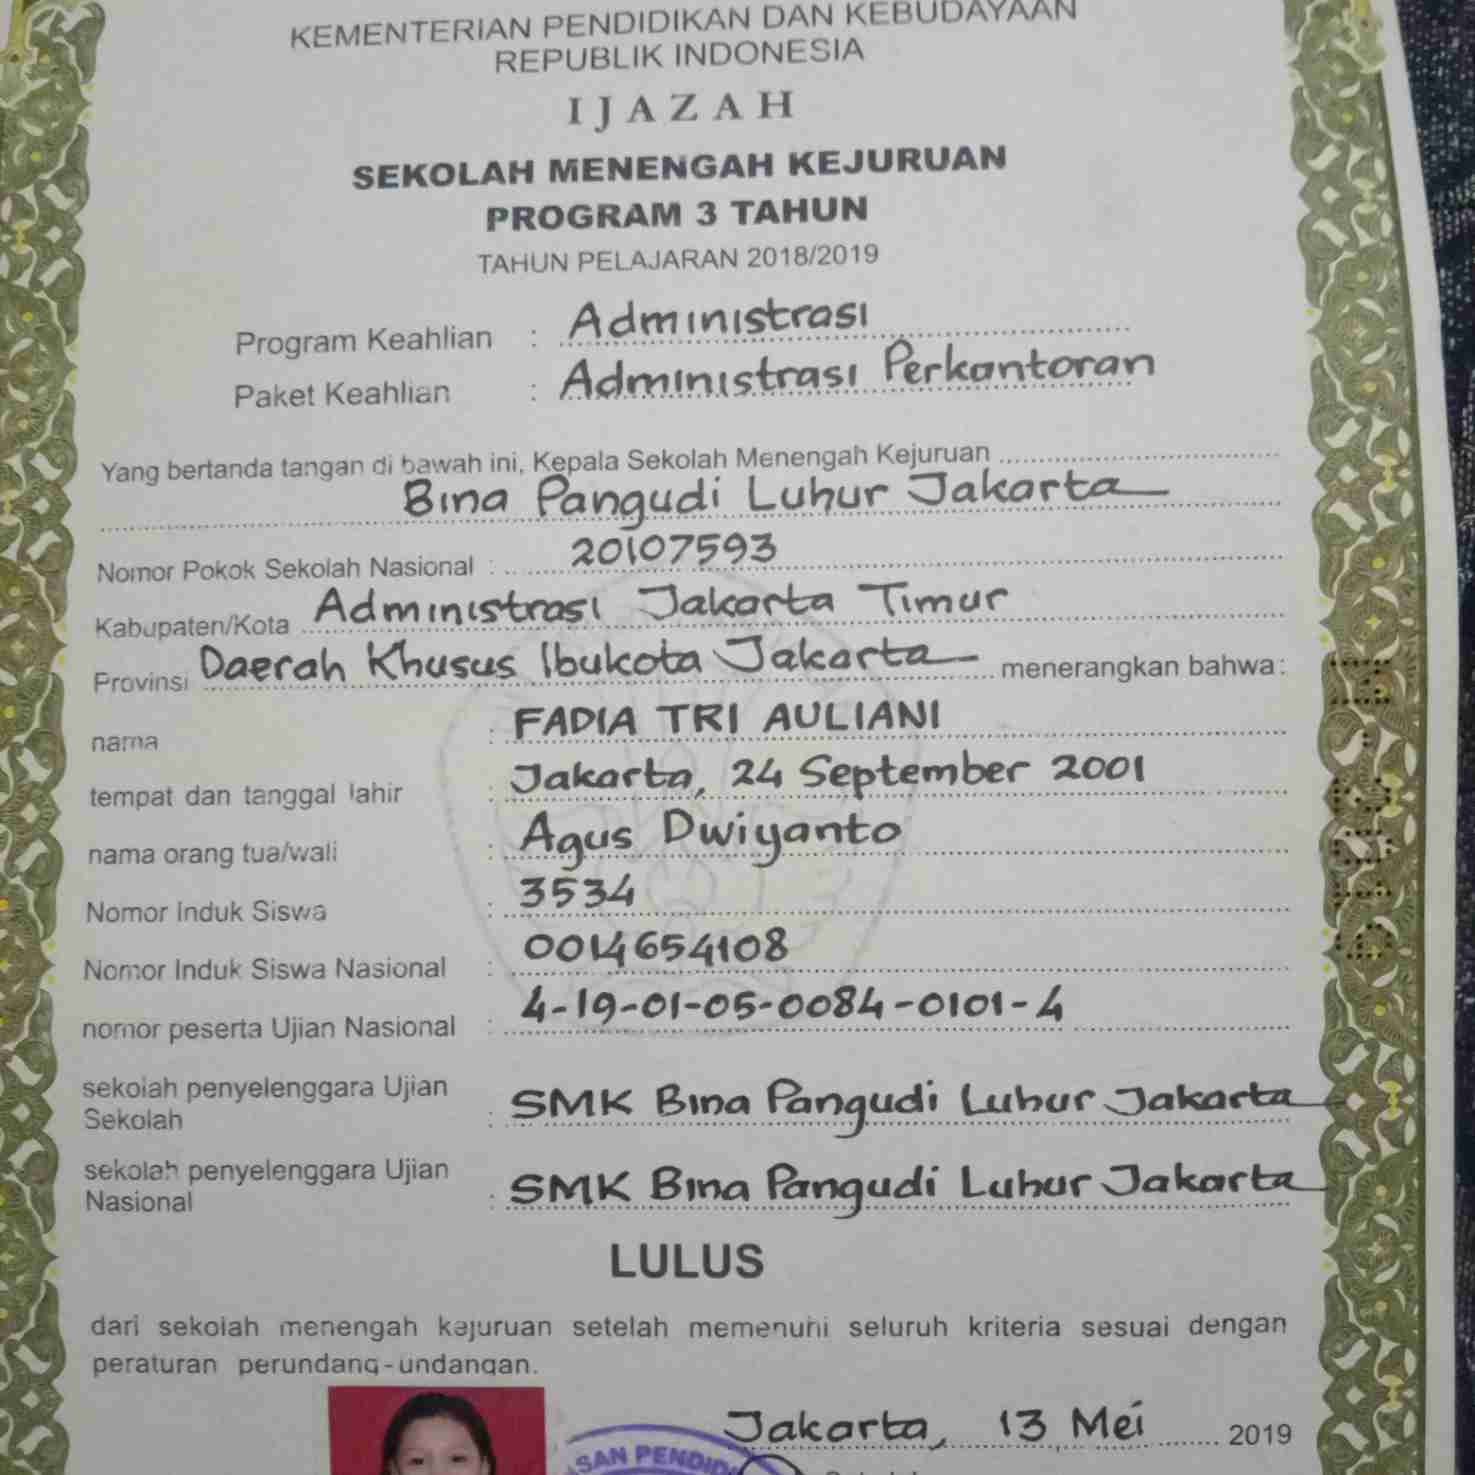 KEMENTERIAN PENDIDIKAN DAN KEBUDAYAAN
REPUBLIK INDONESIA
IJAZAH
SEKOLAH MENENGAH KEJURUAN
PROGRAM 3 TAHUN
TAHUN PELAJARAN 2018/2019
Program Keahlian : Administrasi
Paket Keahlian : Administrasi Perkantoran
Yang bertanda tangan di bawah ini, Kepala Sekolah Menengah Kejuruan
Bina Pangudi Luhur Jakarta
Nomor Pokok Sekolah Nasional : 20107593
Kabupaten/Kota Administrasi Jakarta Timur
Provinsi Daerah Khusus Ibukota Jakarta menerangkan bahwa:
nama : FADIA TRI AULIANI
tempat dan tanggal lahir : Jakarta, 24 September 2001
nama orang tua/wali : Agus Dwiyanto
Nomor Induk Siswa : 3534
Nomor Induk Siswa Nasional : 0014654108
nomor peserta Ujian Nasional : 4-19-01-05-0084-0101-4
sekolah penyelenggara Ujian
Sekolah : SMK Bina Pangudi Luhur Jakarta
sekolah penyelenggara Ujian
Nasional : SMK Bina Pangudi Luhur Jakarta
LULUS
dari sekolah menengah kejuruan setelah memenuhi seluruh kriteria sesuai dengan
peraturan perundang-undangan.
Jakarta, 13 Mei 2019